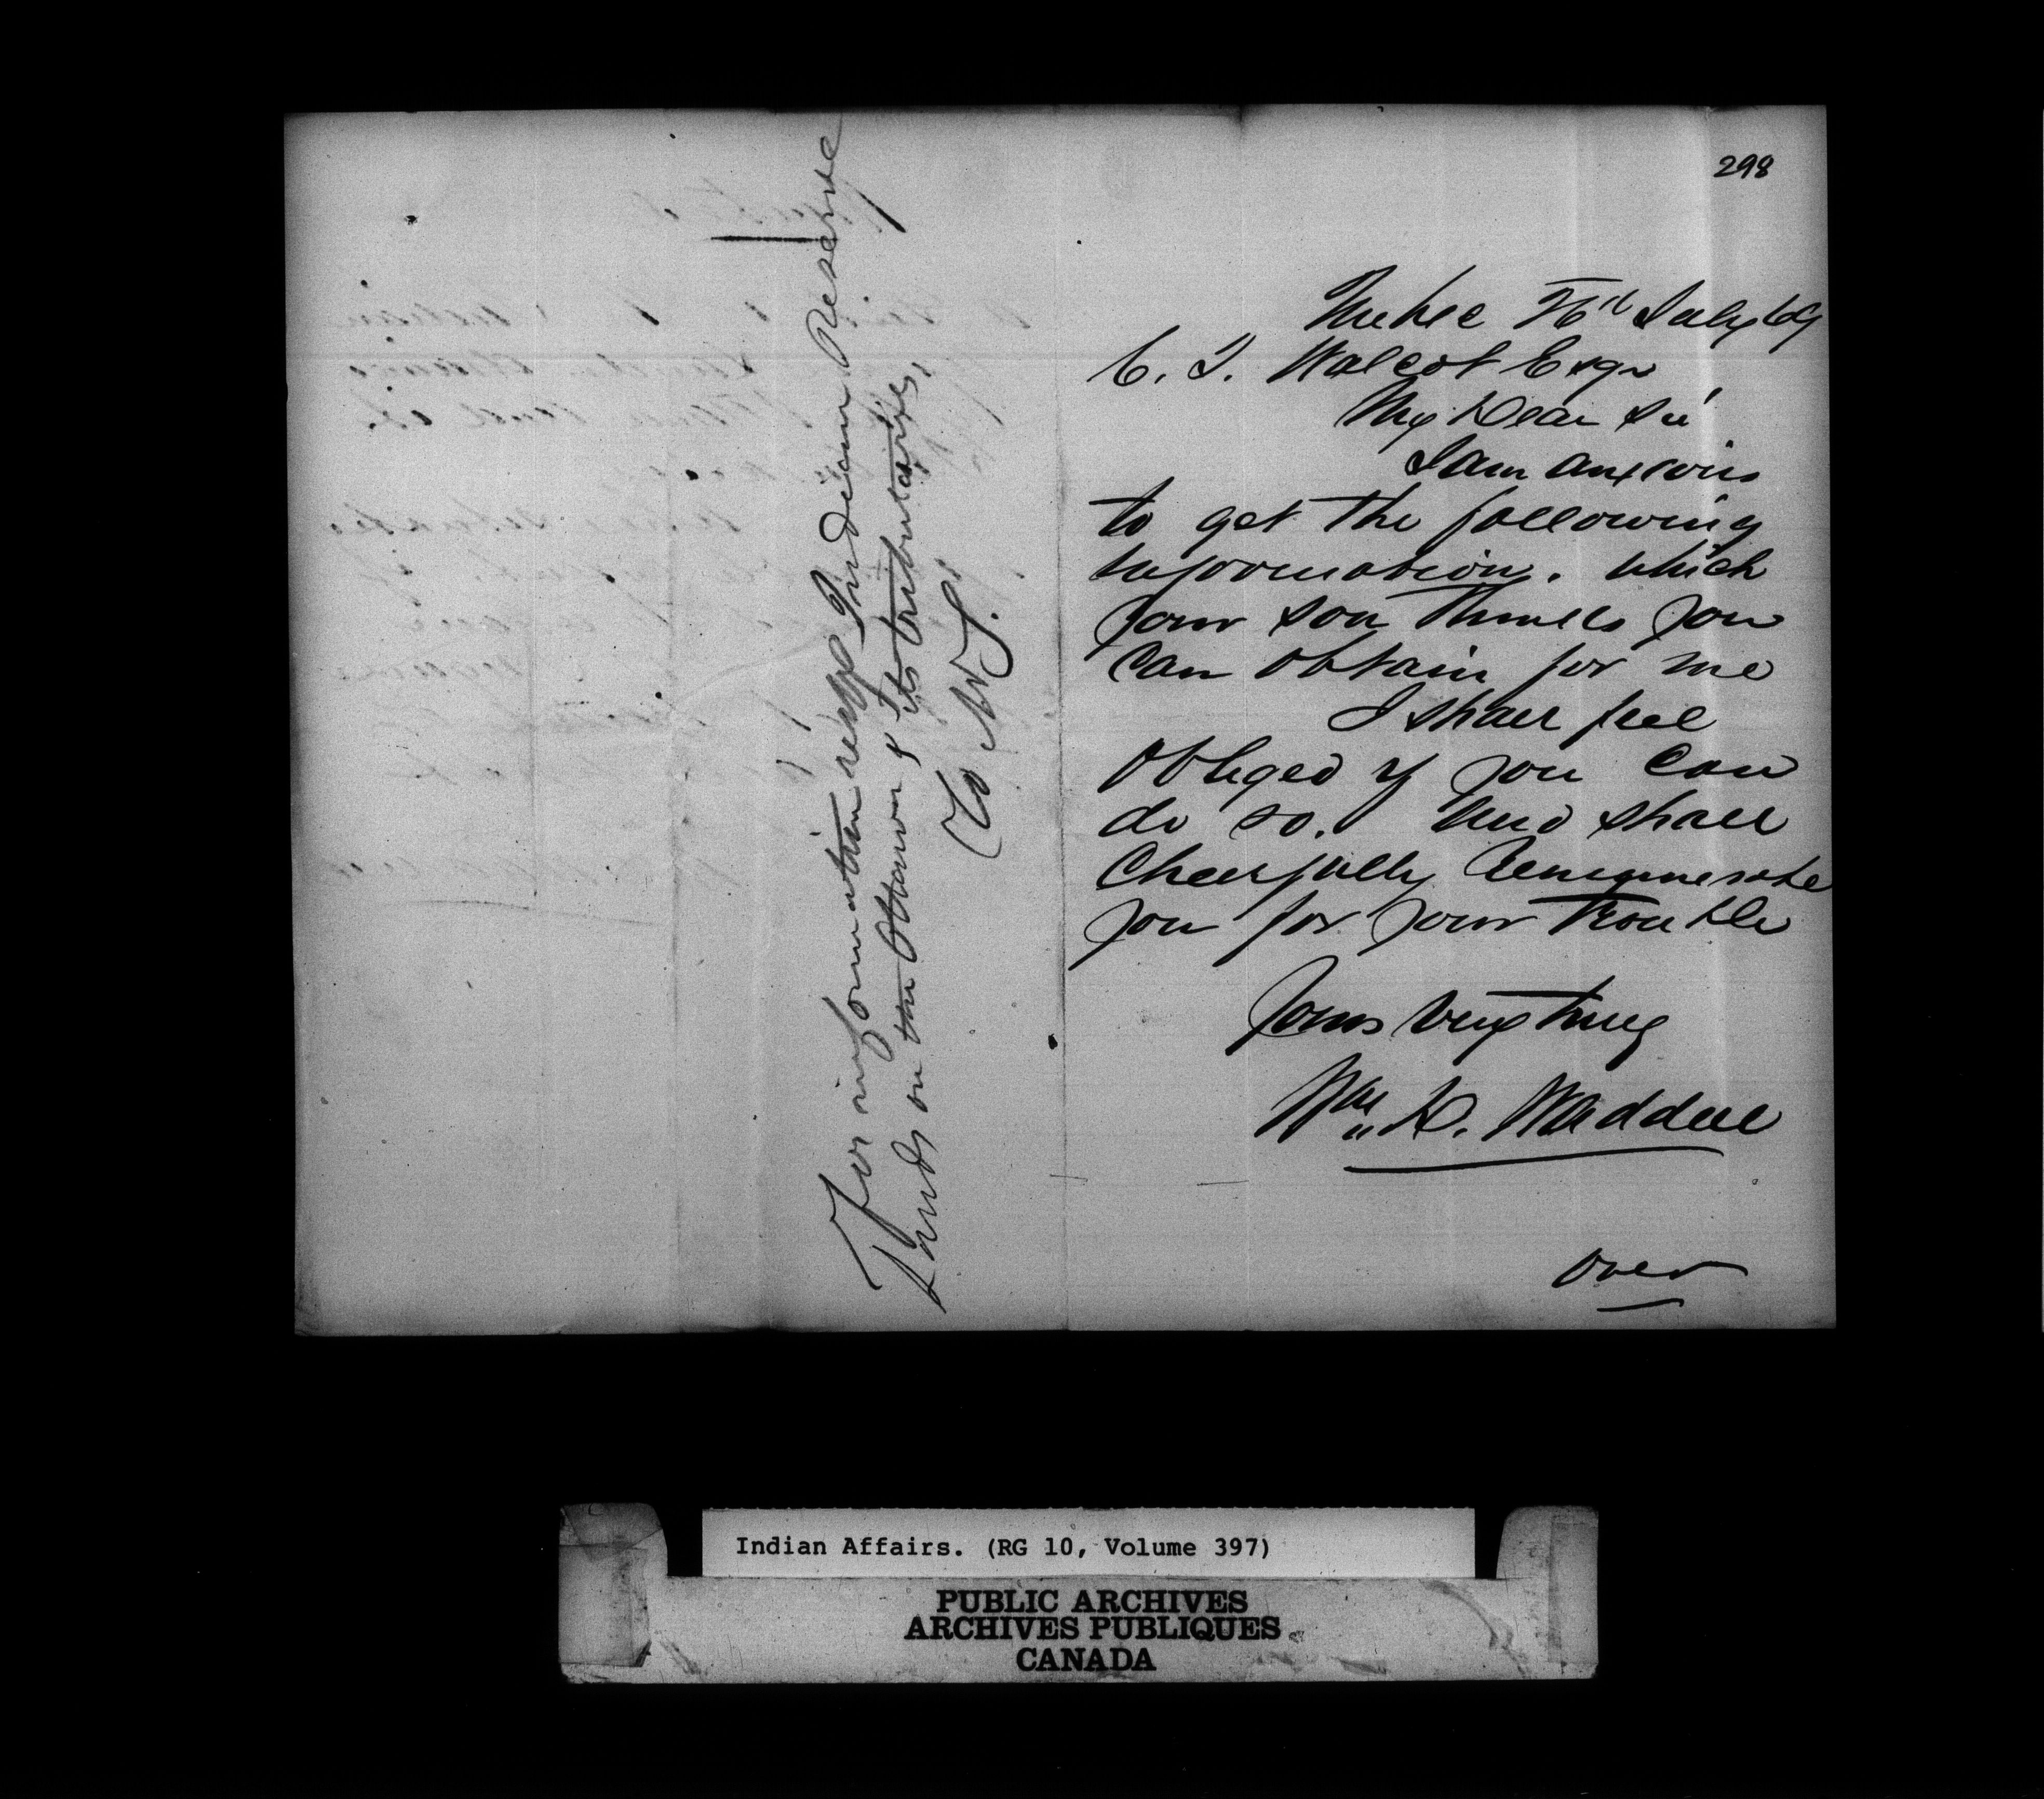 298
Quebec 26th July 69
C. T. Walcot Esqr
My Dear Sir
I am anxious
to get the following
information. which
your son thinks you
can obtain for me
I shall feel
obliged if you can
do so. and shall
cheerfully remunerate
you for your trouble
Yours very truly
Wm H. Waddell
over
For information respg Indian Reserve
Lands on the Ottawa & its tributaries,
C. W.
Indian Affairs. (RG 10, Volume 397)
PUBLIC ARCHIVES
ARCHIVES PUBLIQUES
CANADA